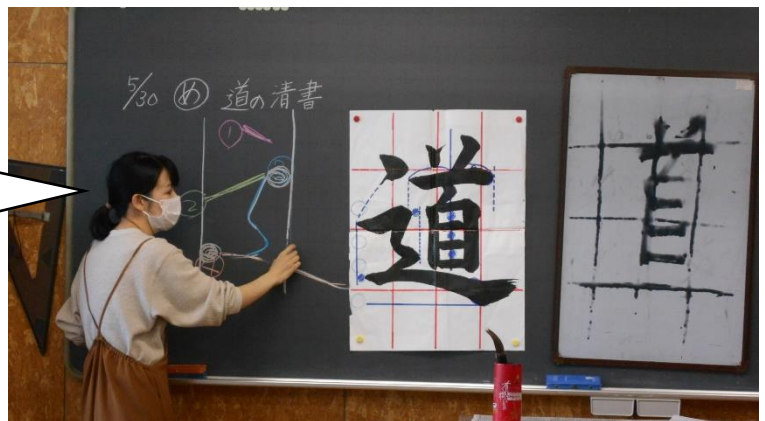 5/30 め 道の清書
1
2
道
首